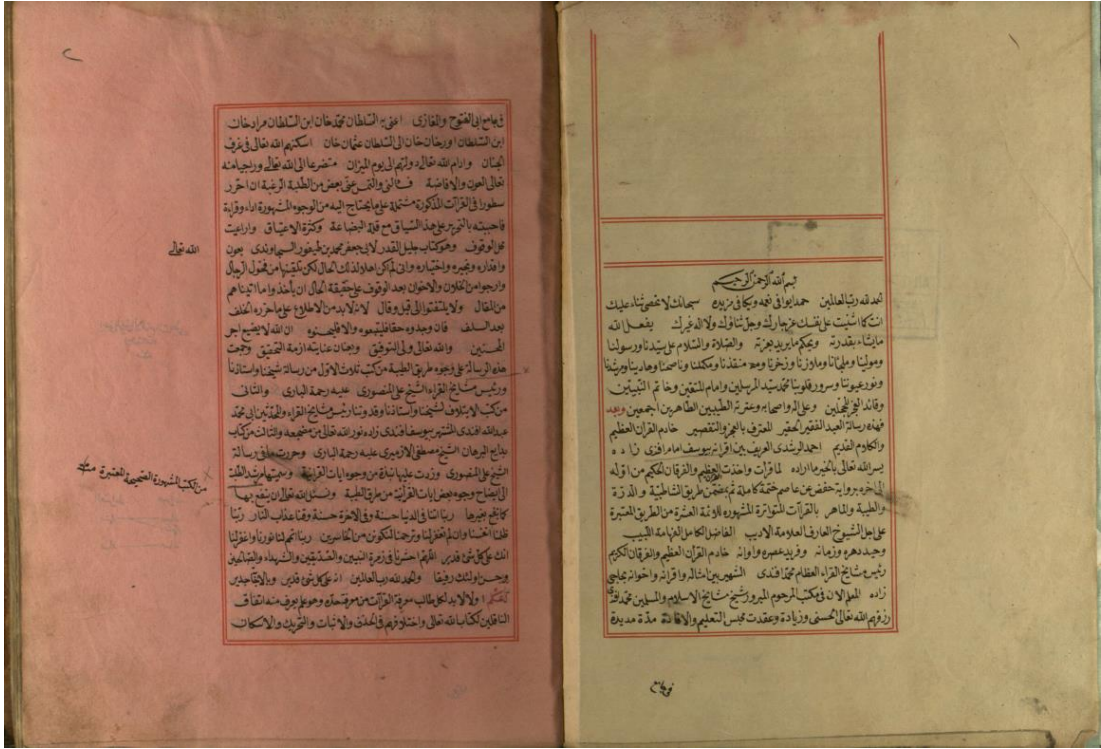 بسم الله الرحمن الرحيم
الحمد لله رب العالمين حمدا يوافي نعمه ويكافي مزيده سبحانك لا نحصي ثناء عليك
انت كما اثنيت على نفسك عز جارك وجل ثناؤك ولا اله غيرك يفعل الله
ما يشاء بقدرته ويحكم ما يريد بعزته والصلاة والسلام على سيدنا ورسولنا
ومولينا وملجأنا وملاذنا وذخرنا ومنقذنا ومكملنا وناصحنا وهادينا ومرشدنا
ونور عيوننا وسرور قلوبنا محمد سيد المرسلين وامام المتقين وخاتم النبيين
وقائد الغر المحجلين وعلى اله واصحابه وعترته الطيبين الطاهرين اجمعين وبعد
فهذه رسالة العبد الفقير الحقير المعترف بالعجز والتقصير خادم القران العظيم
والكلام القديم احمد الرشدي العريف بين اقرانه بيوسف امام افندي زاده
يسر الله تعالى بالخير ما اراده لما قرأت واخذت العظيم والفرقان الحكيم من اوله
الى اخره برواية حفص عن عاصم ختمة كاملة ثم من طريق الشاطبية والدرة
والطيبة والماهر بالقرآت المتواترة المشهوره للائمة العشرة من الطريق المعتبرة
على اجل الشيوخ العارف العلامة الاديب الفاضل الكامل الفهامة اللبيب
وحيد دهره وزمانه وفريد عصره واوانه خادم القران العظيم والفرقان الكريم
رئيس مشايخ القراء العظام محمد افندى الشهير بين امثاله واقرانه واخوانه بچلبي
زاده المعلم الان في مكتب المرحوم المبرور شيخ مشايخ الاسلام والمسلمين محمد افندي
رزقهم الله تعالى الحسنى وزيادة وعقدت مجلس التعليم والافادة مدة مديدة
في جامع
في جامع ابي الفتوح والمغازى اعنى به السلطان محمد خان ابن السلطان مراد خان
ابن السلطان اورخان خان الى السلطان عثمان خان اسكنهم الله تعالى في غرف
الجنان وادام الله تعالى دولتهم الى يوم الميزان متضرعا الى الله تعالى وراجيا منه
تعالى العون والافاضة والتمس عني بعض من الطلبة الرغبة ان احرر
سطورا في القرآت المذكورة مشتملة على ما يحتاج اليه من الوجوه المشهورة اداء وقراءة
فاجبته بالتحرير على هذا السياق مع قلة البضاعة وكثرة الاعتياق وراعيت
محل الوقوف وهو كتاب جليل القدر لابي جعفر محمد بن طيفور السجاوندى بعون
الله تعالى
واقداره واختياره واني لم اكن اهلا لذلك الحال لكن تلقيتها من فحول الرجال
وارجوا من الخلان والاخوان بعد الوقوف على حقيقة الحال ان يأخذوا ما اتيناهم
من المقال ولا يلتفتوا الى قيل وقال لانه لابد من الاطلاع على ما حرره الخلف
بعد السلف فان وجدوه حقا فليتبعوه والا فليمحوه ان الله لا يضيع اجر
المحسنين والله تعالى ولي التوفيق وبعنان عنايته ازمة التحقيق وجمعت
هذه الرسالة على وجوه طريق الطيبة من كتب ثلاث الاول من رسالة شيخنا واستاذنا
ورئيس مشايخ القراء الشيخ على المنصورى عليه رحمة البارى والثانى
من كتب الايتلاف لشيخنا واستاذنا وقدوتنا رئيس مشايخ القراء والمحدثين ابي محمد
عبد الله افندى المشتهر بيوسف افندى زاده نور الله تعالى مضجعه والثالث من كتاب
بدايع البرهان الشيخ مصطفى الازميرى عليه رحمة البارى وحررت ما في رسالة
الشيخ على المنصورى وزدت عليها نبذة من وجوهات القرآنية وجمعتها من الطلبة
من الكتب المشهورة الصحيحة المعتبرة
الى ايضاح وجوه بعض ايات القرآنية من طرق الطيبة ونسئل الله تعالى ان ينفع بها
كما نفع بغيرها ربنا اتنا في الدنيا حسنة وفي الاخرة حسنة وقنا عذاب النار ربنا
ظلمنا انفسنا وان لم تغفر لنا وترحمنا لنكونن من الخاسرين ربنا اتمم لنا نورنا واغفر لنا
انك على كل شئ قدير اللهم احشرنا في زمرة النبيين والصديقين والشهداء والصالحين
وحسن اولئك رفيقا والحمد لله رب العالمين انه على كل شئ قدير وبالاجابة جدير
اعلم اولا لابد لكل طالب معرفة القرآت من معرفة حده وهو علم يعرف منه اتفاق
الناقلين لكتاب الله تعالى واختلافهم في الحذف والاثبات والتحريك والاسكان